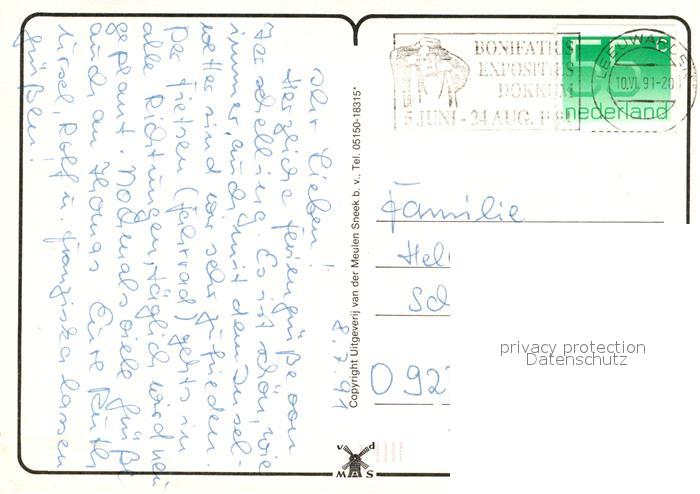 8.7.91
Ihr Lieben!
Herzliche Feriengrüße von
Terschelling. Es ist schön, wie
immer, auch mit dem Insel-
wetter sind wir sehr zufrieden.
Per Fietsen (Fahrrad) gehts in
alle Richtungen, täglich wird neu
geplant. Nochmals viele Grüße
auch an Thomas Eure Ruth
Ursel, Rolf u. Franziska lassen
grüßen!
Copyright Uitgeverij van der Meulen Sneek b. v., Tel. 05150-18315*
BONIFATIUS
EXPOSITIES
DOKKUM
5 JUNI - 24 AUG. 1991
LEEUWARDEN
10.VI.91-20
55 c
nederland
Familie
Hel
Sch
092
privacy protection
Datenschutz
v d p
MAS